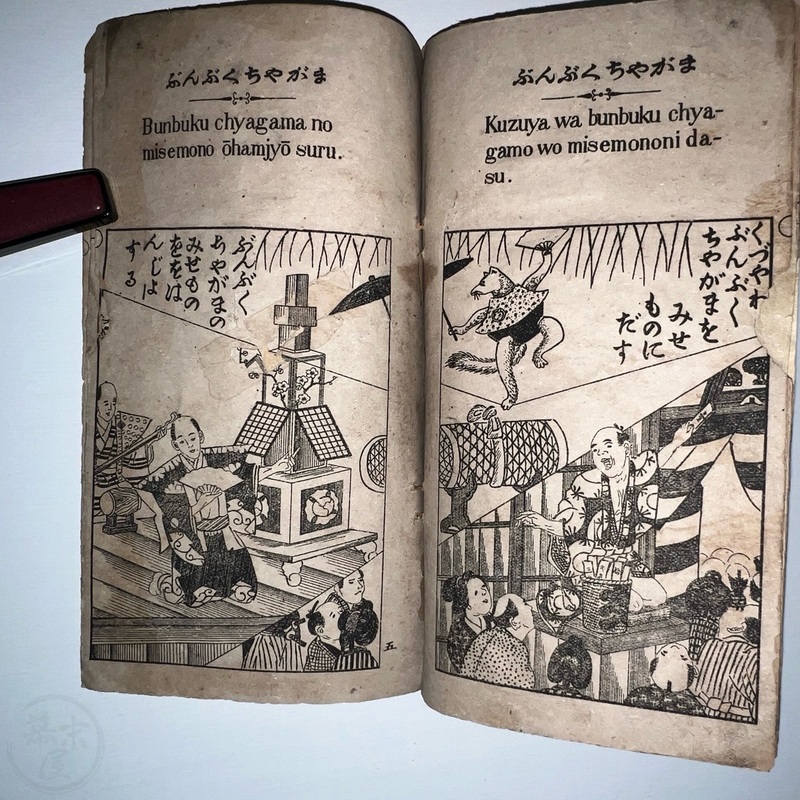 ぶんぶくちやがま
Kuzuya wa bunbuku chya-
gamo wo misemononi da-
su.
くづやわ
ぶんぶく
ちやがまを
みせ
ものに
だす
ぶんぶくちやがま
Bunbuku chyagama no
misemono ōhamjyō suru.
ぶんぶく
ちやがまの
みせもの
ををは
んじよ
する
五